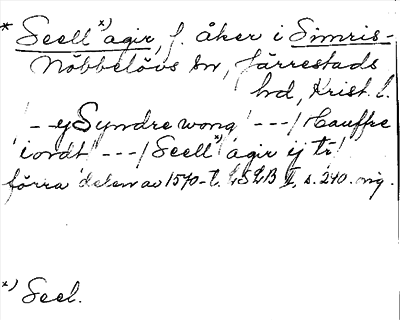 * Seell*) agir, f. åker i Simris-
Nöbbelövs sn, Järrestads
hd, Krist. l.
'--- y Syndre wong' ---/ Hauffre
iordt' ---/ Seell*) agir ij ti'
förra delen av 1570-t. LSLB I, s. 240.
*) Seel.